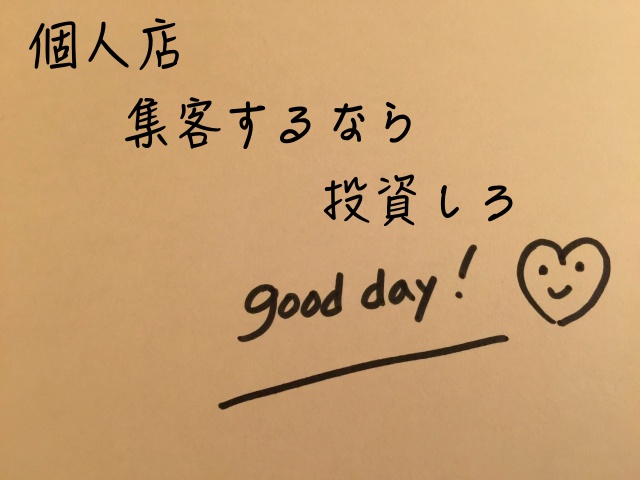 個人店
集客するなら
投資しろ
good day!